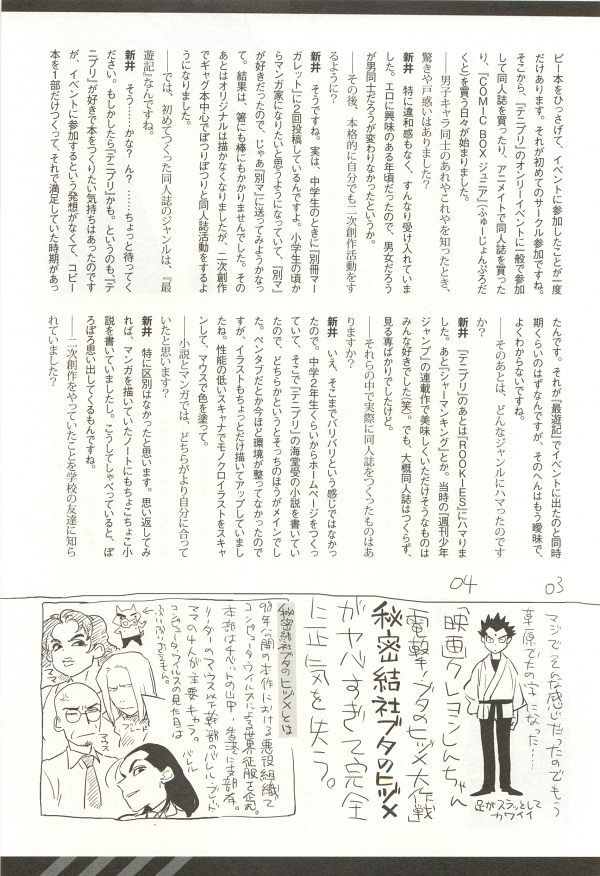 ピー本をひっさげて、イベントに参加したことが一度
だけあります。それが初めてのサークル参加ですね。
そこから、『テニプリ』のオンリーイベントに一般で参加
して同人誌を買ったり、アニメイトで同人誌を買った
り、『COMIC BOX ジュニア』(ふゅーじょんぷろだ
くと)を買う日々が始まりました。
――男子キャラ同士のあれやこれやを知ったとき、
驚きや戸惑いはありました?
新井 特に違和感もなく、すんなり受け入れていま
した。エロに興味のある年頃だったので、男女だろう
が男同士だろうが変わりなかったというか。
――その後、本格的に自分でも二次創作活動をす
るように?
新井 そうですね。実は、中学生のときに『別冊マー
ガレット』に2回投稿しているんですよ。小学生の頃か
らマンガ家になりたいと思うようになっていて、『別マ』
が好きだったので、じゃあ『別マ』に送ってみようかなっ
て。結果は、箸にも棒にもかかりませんでした。その
あとはオリジナルは描かなくなりましたが、二次創作
でギャグ本中心でぽつりぽつりと同人誌活動をするよ
うになりました。
――では、初めてつくった同人誌のジャンルは、『最
遊記』なんですね。
新井 そう……かな?ん?……ちょっと待ってく
ださい。もしかしたら『テニプリ』かも。というのも、『テ
ニプリ』が好きで本をつくりたい気持ちはあったのです
が、イベントに参加するという発想がなくて、コピー
本を1部だけつくって、それで満足していた時期があっ
たんです。それが『最遊記』でイベントに出たのと同時
期くらいのはずなんですが、そのへんはもう曖昧で、
よくわからないですね。
――そのあとは、どんなジャンルにハマったのです
か?
新井 『テニプリ』のあとは『ROOKIES』にハマりま
した。あと『シャーマンキング』とか。当時の『週刊少年
ジャンプ』の連載作で美味しくいただけそうなものは
みんな好きでした(笑)。でも、大概同人誌はつくらず、
見る専ばかりでしたけど。
――それらの中で実際に同人誌をつくったものはあ
りますか?
新井 いえ、そこまでバリバリという感じではなかっ
たので。中学2年生くらいからホームページをつくっ
ていて、そこで『テニプリ』の海堂受の小説を書いてい
たので、どちらかというとそっちのほうがメインでし
た。ペンタブだとか今ほど環境が整ってなかったので
すが、イラストもちょっとだけ描いてアップしていまし
たね。性能の低いスキャナでモノクロイラストをスキャ
ンして、マウスで色を塗って。
――小説とマンガでは、どちらがより自分に合って
いたと思います?
新井 特に区別はなかったと思います。思い返してみ
れば、マンガを描いていたノートにもちょこちょこ小
説を書いていましたし。こうしてしゃべっていると、ぽ
ろぽろ思い出してくるもんですね。
――二次創作をやっていたことを学校の友達に知ら
れていました?
03
マジでそんな感じだったのでもう
草原で大の字になった……
足がスラッとして
カワイイ
04
「映画クレヨンしんちゃん
電撃!ブタのヒヅメ大作戦」
秘密結社ブタのヒヅメ
がヤバすぎて完全
に正気を失う。
秘密結社ブタのヒヅメとは
98年公開の本作における悪役組織で
コンピュータウイルスによる世界征服を企む。
本部はチベットの山中!香港に支部有。
リーダーのマウス以下幹部のバレル・ブレード
ママの4人が主要キャラ。
コンピュータウイルスの見た目は
ぶりぶりざえもん。
ブレード
マウス
バレル